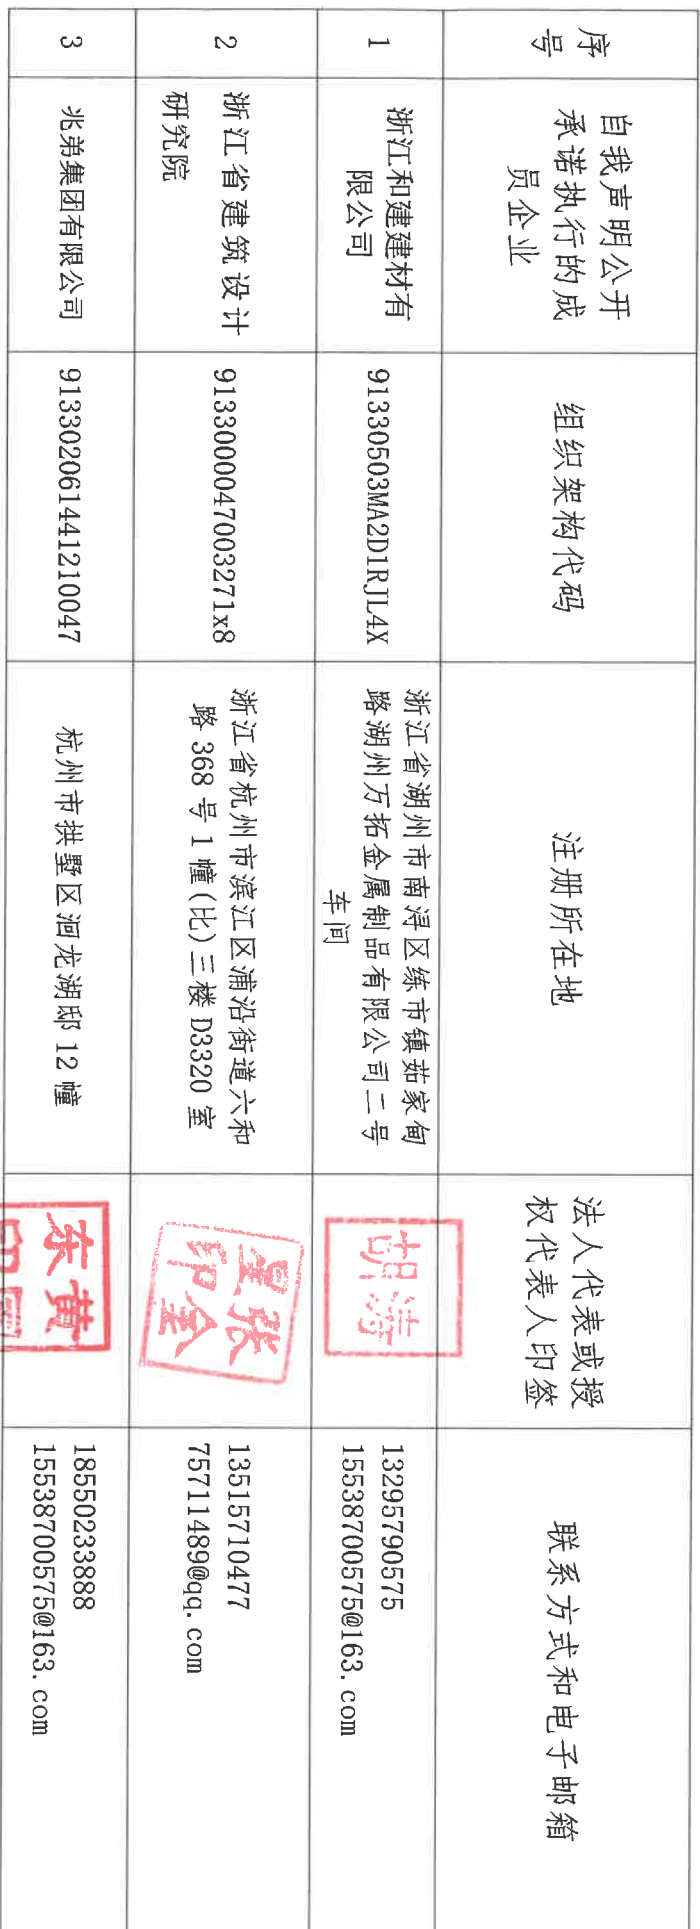 序
号
自我声明公开
承诺执行的成
员企业
组织架构代码
注册所在地
法人代表或授
权代表人印签
联系方式和电子邮箱
1
浙江和建建材有
限公司
91330503MA2D1RJL4X
浙江省湖州市南浔区练市镇茹家甸
路湖州万拓金属制品有限公司二号
车间
胡涛
13295790575
15538700575@163.com
2
浙江省建筑设计
研究院
9133000047003271x8
浙江省杭州市滨江区浦沿街道六和
路 368 号 1 幢(比)三楼 D3320 室
张金
星印
13515710477
75711489@qq.com
3
兆弟集团有限公司
913302061441210047
杭州市拱墅区洄龙湖邸 12 幢
黄
东印
18550233888
15538700575@163.com